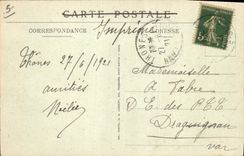 5
CARTE POSTALE
CORRESPONDANCE
ADRESSE
Imprimé
Thônes 27/6/1921
amitiés
Mademoiselle
A. Fabre
D. E. des P.E.E
Draguignan
Var